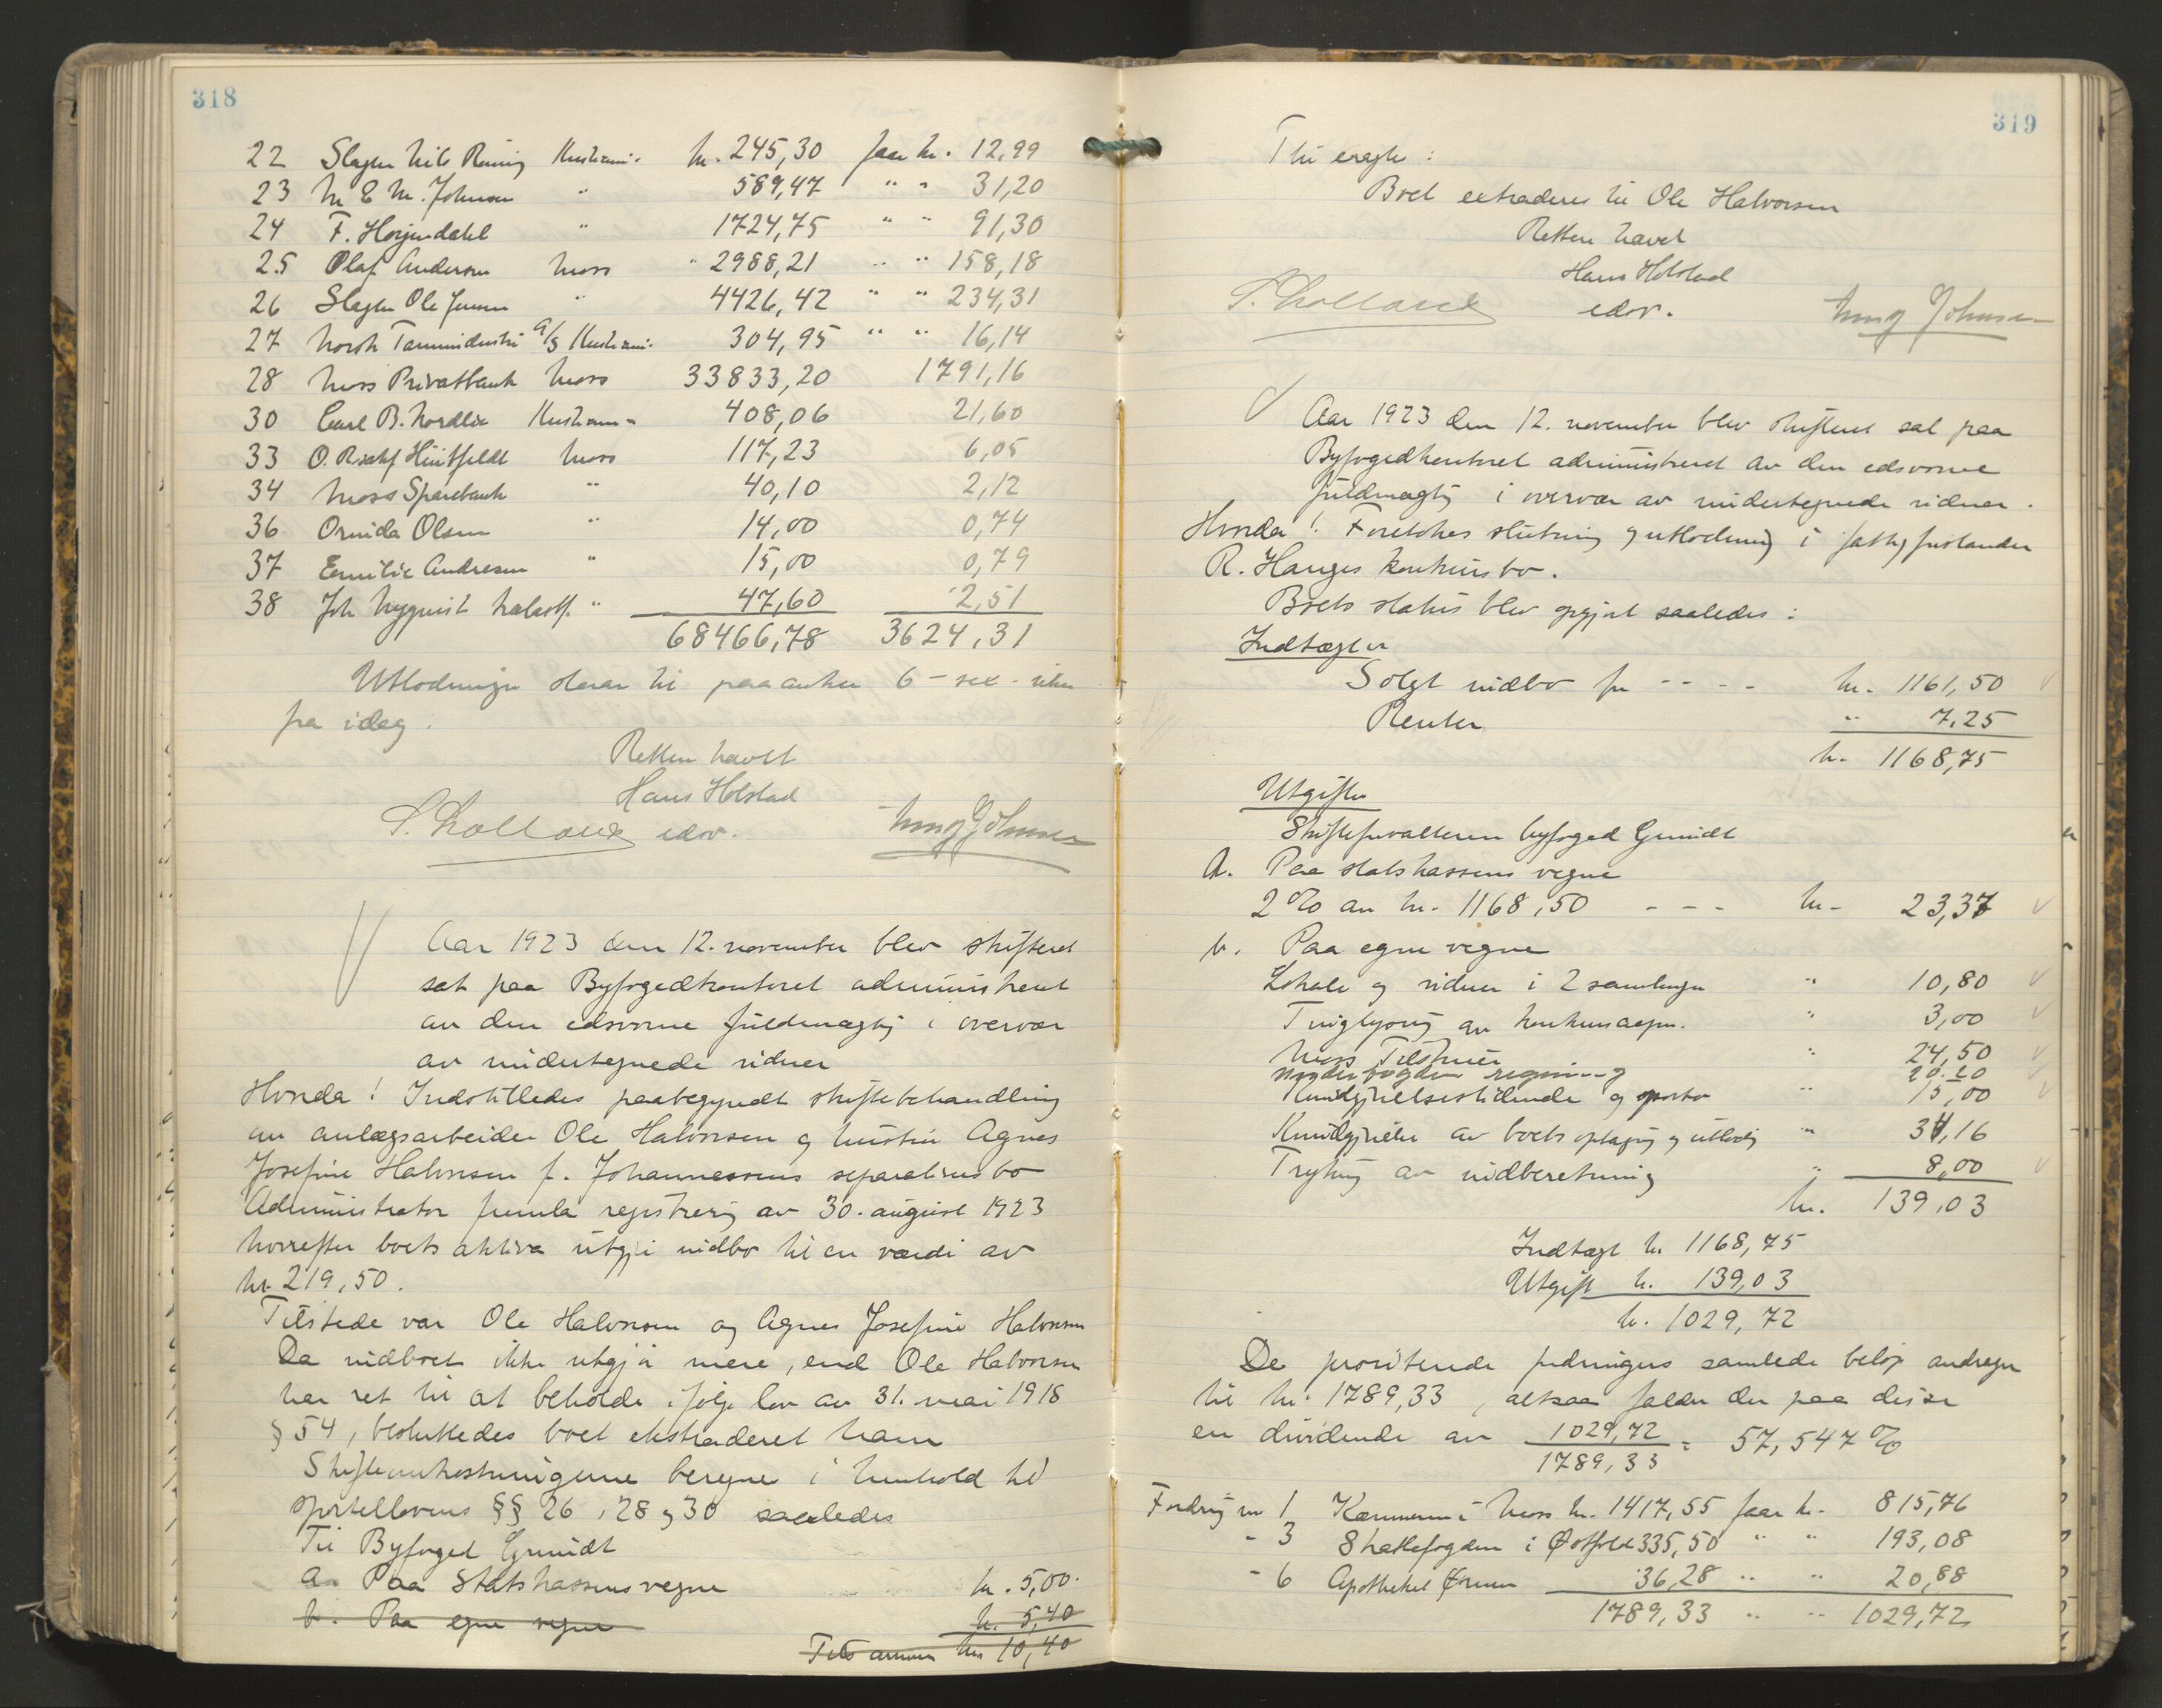 318
22 Slagter Nils Reining Kristiania kr. 245,30 faar kr. 12,99
23 M E M. Johnsen " 589,47 " " 31,20
24 F. Horjendahl " 1724,75 " " 91,30
25 Olaf Andersen Moss " 2988,21 " " 158,18
26 Slagter Ole Jensen " 4426,42 " " 234,31
27 Norsk Tarmindustri A/S Kristiania 304,95 " " 16,14
28 Moss Privatbank Moss 33833,20 1791,16
30 Carl B. Nordlie Kristiania 408,06 21,60
33 O. Huitfeldt Moss 117,23 6,05
34 Moss Sparebank " 40,10 2,12
36 Ornida Olsen " 14,00 0,74
37 Emilie Andresen " 15,00 0,79
38 Joh Nyquist " 47,60 2,51
68466,78 3624,31
Utlodningen staar til paaanke 6 - sex - uker
fra idag.
Retten hævet
Hans Holstad
edsv.
Aar 1923 den 12. november blev skifteret
sat paa Byfogedkontoret administreret
av den edsvorne fuldmægtig i overvær
av undertegnede vidner
Hvorda! Indstilledes paabegyndt skiftebehandling
av anlægsarbeider Ole Halvorsen og hustru Agnes
Josefine Halvorsen f. Johannessens separationsbo
Administrator fremla registrering av 30. august 1923
hvorefter boets aktiva utgjør indbo til en værdi av
kr. 219,50.
Tilstede var Ole Halvorsen og Agnes Josefine Halvorsen
Da indboet ikke utgjør mere, end Ole Halvorsen
har ret til at beholde ifølge lov av 31. mai 1918
§ 54, besluttedes boet ekstraderet ham
Skifteomkostningerne beregnes i henhold til
sportellovens §§ 26, 28 og 30 saaledes
Til Byfoged Grundt
a. Paa Statskassens vegne kr. 5,00
b. Paa egne vegne kr. 5,40
Tilsammen kr. 10,40
319
Thi eragtes:
Boet extraderes til Ole Halvorsen
Retten hævet
Hans Holstad
edsv.
Aar 1923 den 12. november blev skifteret sat paa
Byfogedkontoret administreret av den edsvorne
fuldmægtig i overvær av undertegnede vidner.
Hvorda! Foretokes slutning og utlodning i fattigforstander
R. Hauges konkursbo.
Boets status blev opgjort saaledes:
Indtægter
Solgt indbo for - - - - kr. 1161,50
Renter " 7,25
kr. 1168,75
Utgifter
Skifteforvalteren byfoged Grundt
a. Paa statskassens vegne
2% av kr. 1168,50 - - - kr. 23,37
b. Paa egne vegne
Lokale og vidner i 2 samlinger " 10,80
Tinglysning av konkursaapn. " 3,00
Moss Tilskuer " 24,50
Namdsfogdens regning 20.20
Kundgjørelsestidende og porto " 15,00
Kundgjørelse av boets optagning og utlodnig " 34,16
Trykning av indberetning " 8,00
kr. 139,03
Indtægt kr. 1168,75
Utgift kr. 139,03
kr. 1029,72
De prioriterede fordringers samlede beløp andrager
til kr. 1789,33, altsaa falder der paa disse
en dividende av 1029,72 / 1789,33 = 57,547%
Fordring nr 1 Kæmneren i Moss kr. 1417,55 faar kr. 815,76
- 3 Skattefogden i Østfold 335,50 " " 193,08
- 6 Apotheket Ørnen 36,28 " " 20,88
1789,33 " " 1029,72